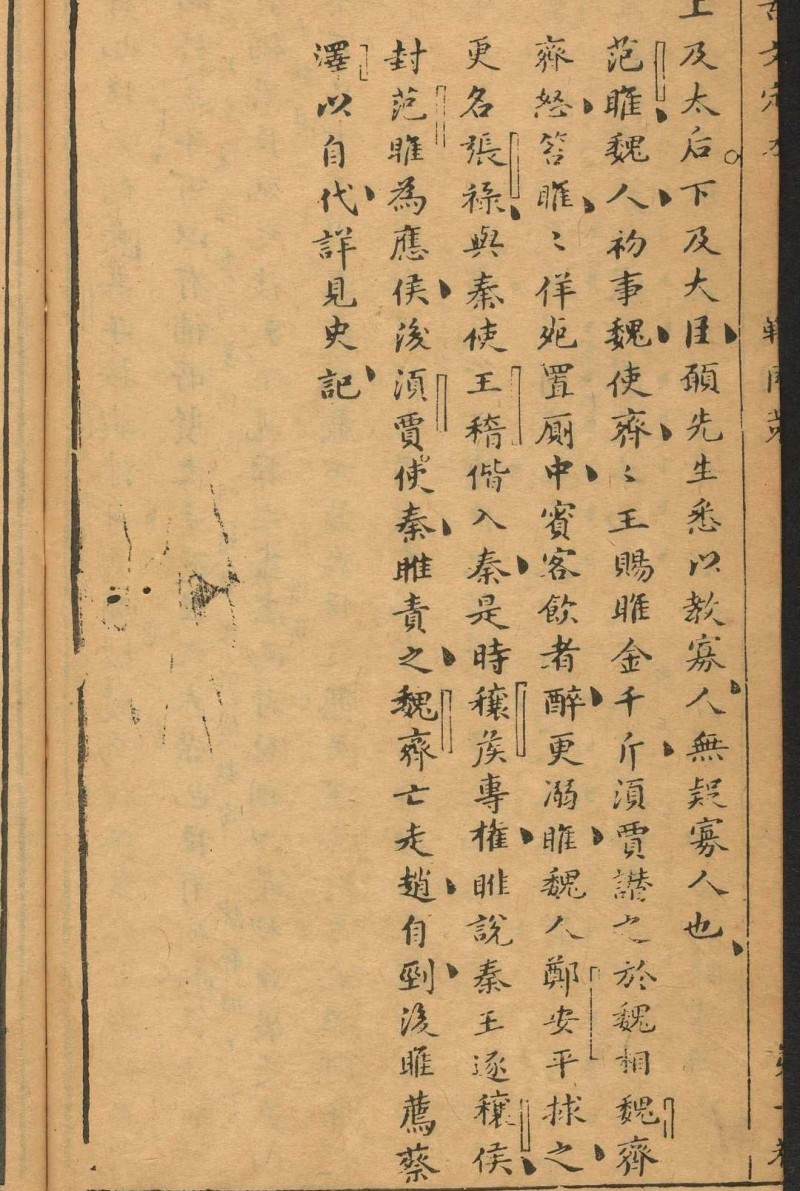 上及太后下及大臣願先生悉以教寡人無疑寡人也
范睢魏人初事魏使齊〻王賜睢金千斤湏賈譛之於魏相魏齊
齊怒笞睢〻佯死置厠中賓客飲者醉更溺睢魏人鄭安平捄之
更名張祿與秦使王稽偕入秦是時穰侯專權睢說秦王逐穰侯
封范睢為應侯後湏賈使秦睢責之魏齊亡走趙自剄後睢薦蔡
澤以自代詳見史記